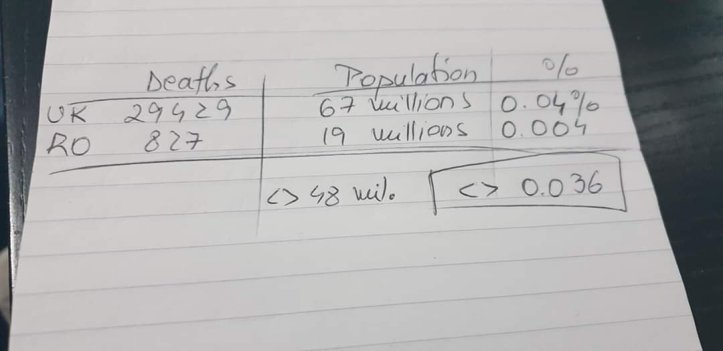 Deaths Population %
UK 29429 67 millions 0.04%
RO 827 19 millions 0.004
<> 48 mil. <> 0.036